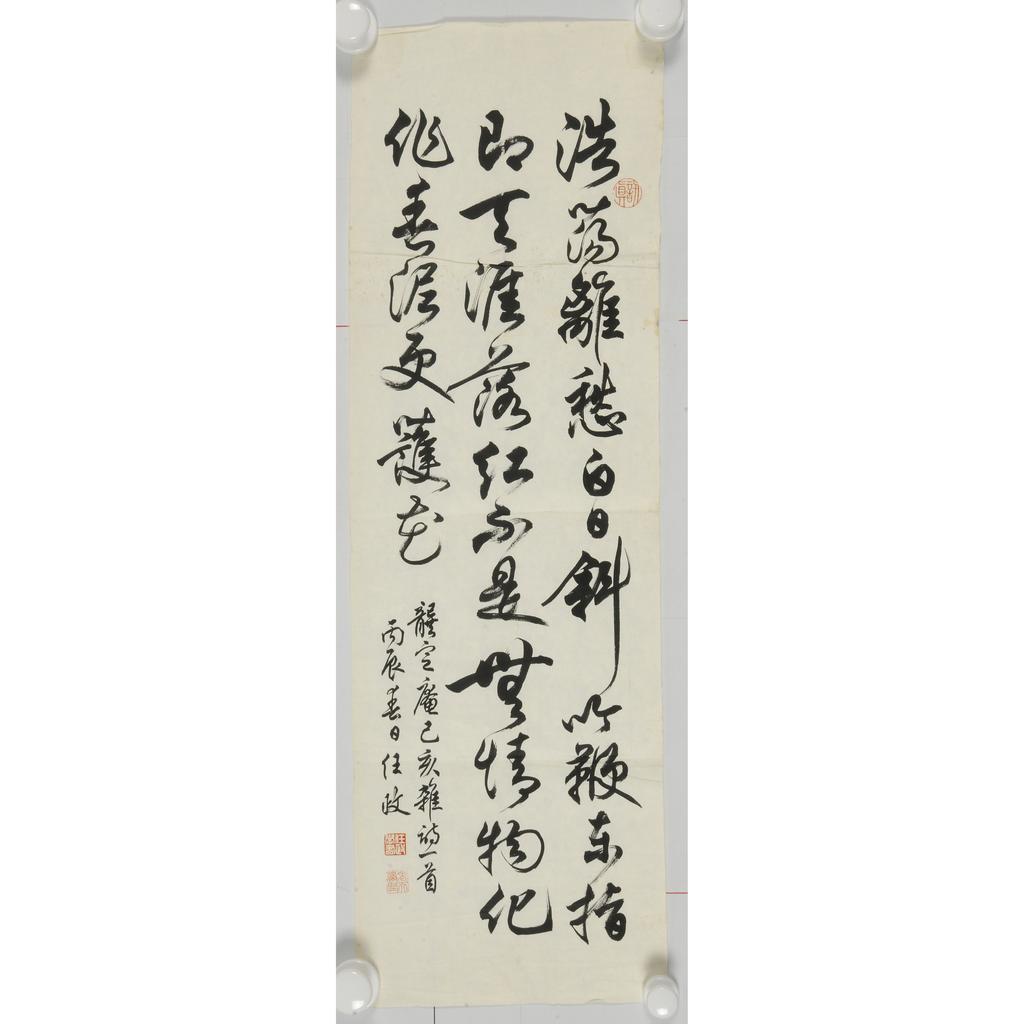 浩蕩離愁白日斜吟鞭東指
即天涯落紅不是無情物化
作春泥更護花
龔定庵己亥雜詩一首
丙辰春日任政